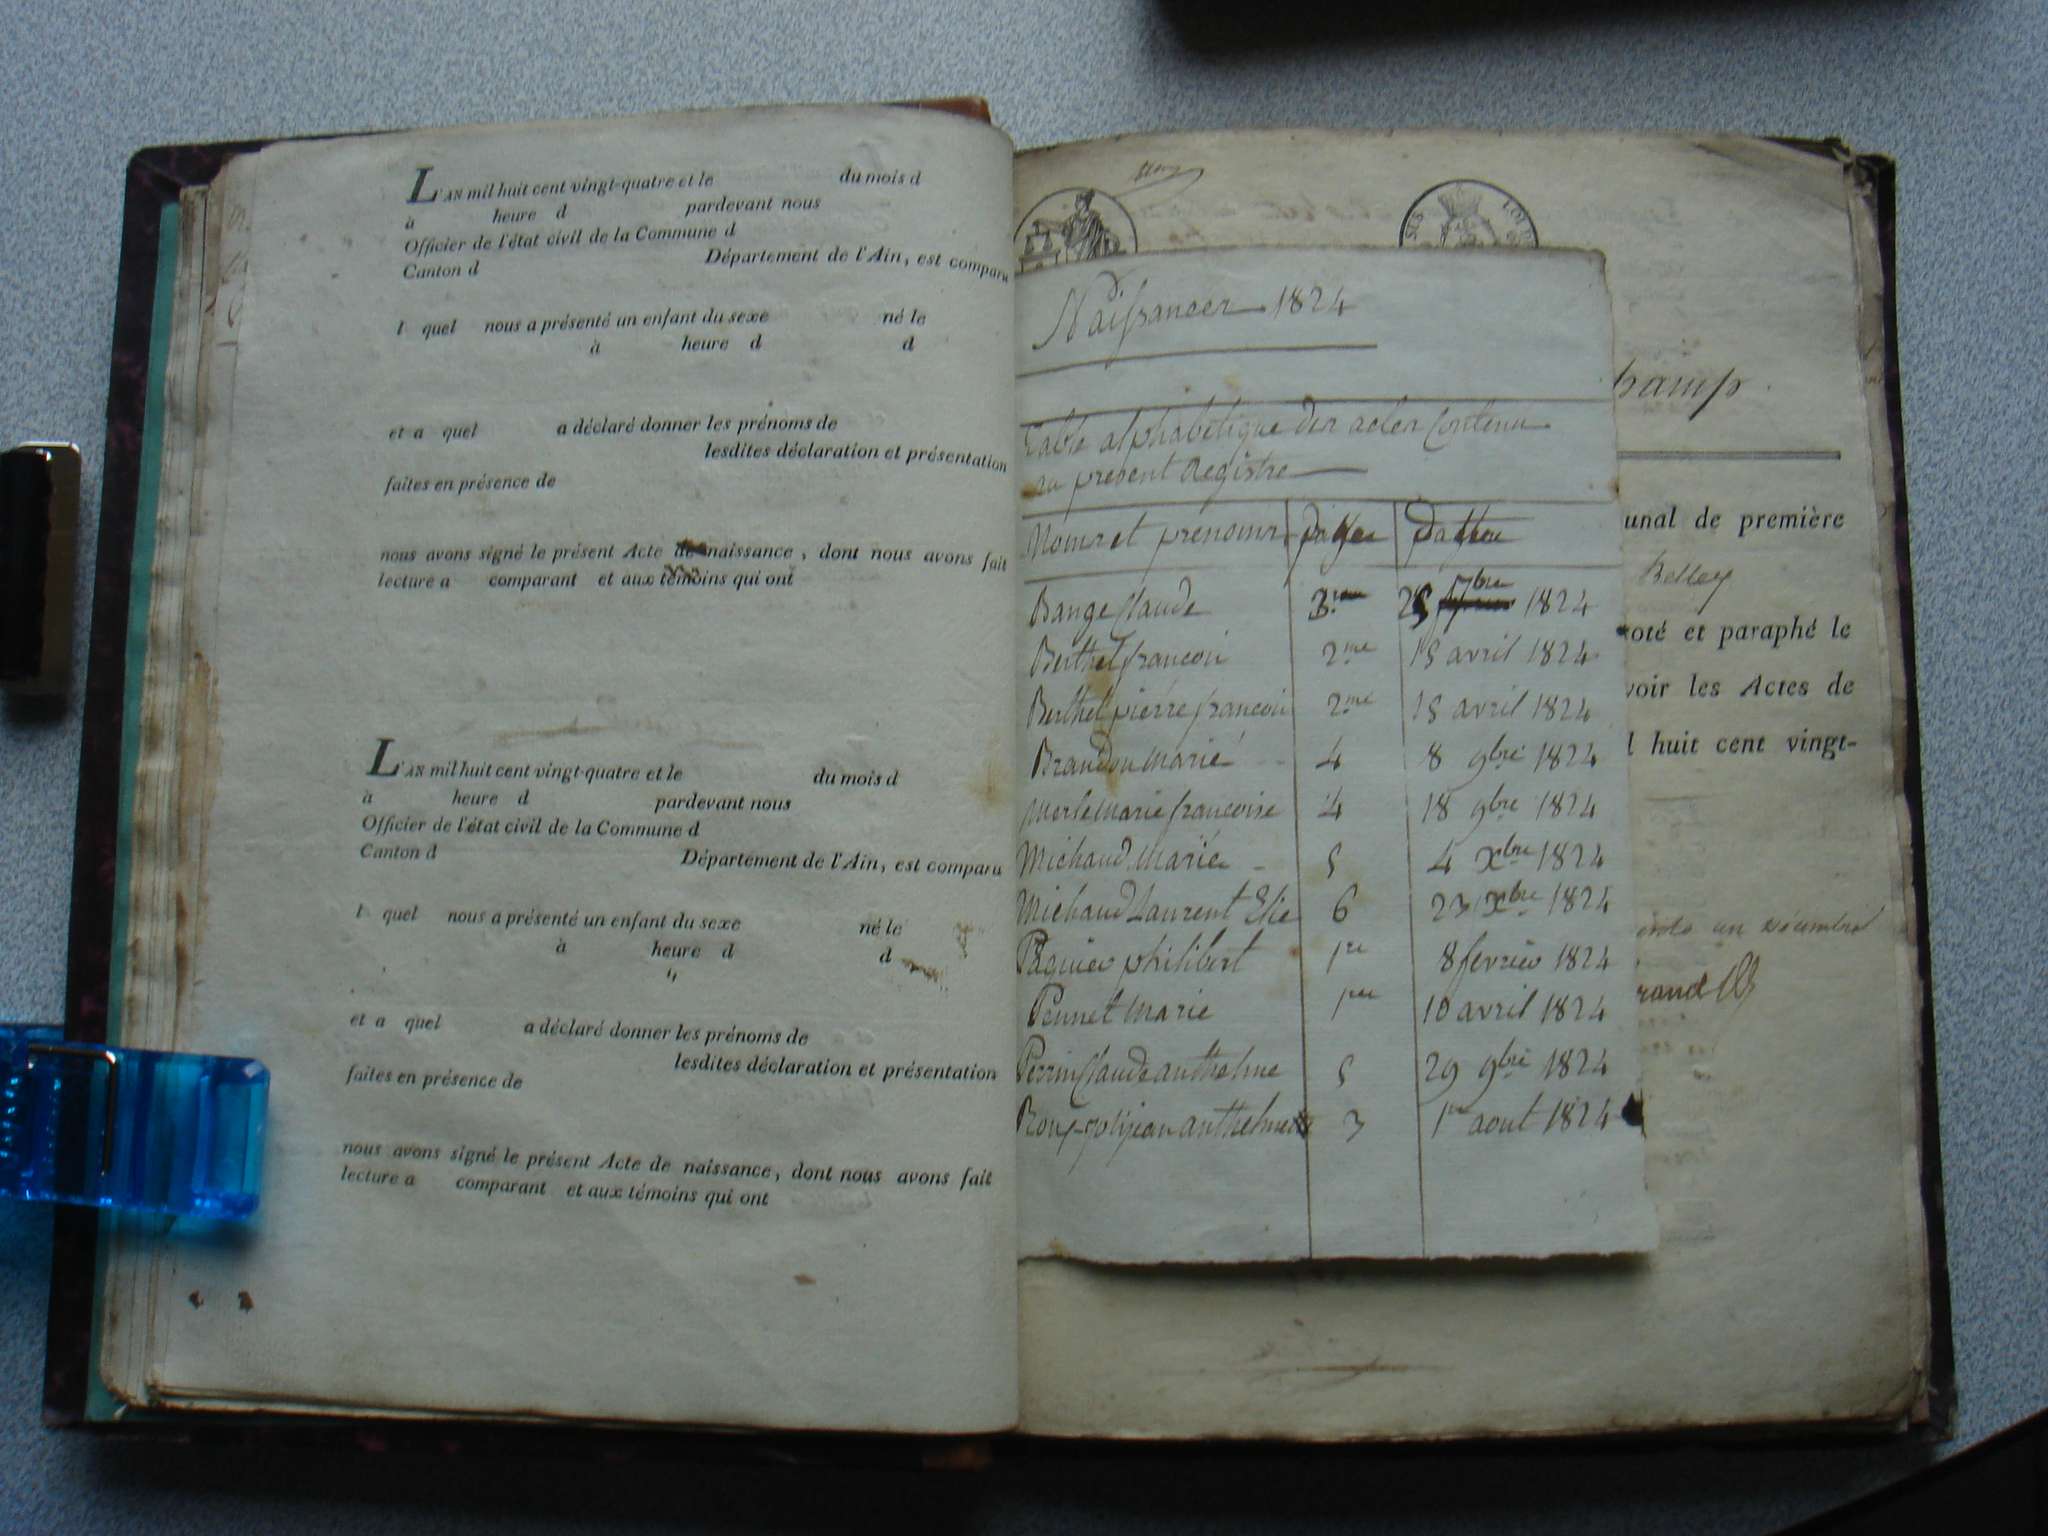 L'AN mil huit cent vingt-quatre et le du mois d
à heure d pardevant nous
Officier de l'état civil de la Commune d
Canton d Département de l'Ain, est comparu
l quel nous a présenté un enfant du sexe né le
à heure d d
et a quel a déclaré donner les prénoms de
lesdites déclaration et présentation
faites en présence de
nous avons signé le présent Acte de naissance, dont nous avons fait
lecture a comparant et aux témoins qui ont
L'AN mil huit cent vingt-quatre et le du mois d
à heure d pardevant nous
Officier de l'état civil de la Commune d
Canton d Département de l'Ain, est comparu
l quel nous a présenté un enfant du sexe né le
à heure d d
et a quel a déclaré donner les prénoms de
lesdites déclaration et présentation
faites en présence de
nous avons signé le présent Acte de naissance, dont nous avons fait
lecture a comparant et aux témoins qui ont
Naissances 1824
Table alphabetique des actes Contenu
au present Registre
Noms et prenoms pages dattes
Bange Claude 3 25 7bre 1824
Berthet francois 2me 15 avril 1824
Berthet pierre francois 2me 15 avril 1824
Brandon Marie 4 8 9bre 1824
Merle Marie francoise 4 18 9bre 1824
Michaud Marie 5 4 xbre 1824
Michaud Laurent Elie 6 23 xbre 1824
Paquier philibert 1re 8 fevrier 1824
Pennet Marie 1re 10 avril 1824
Perrin Claude anthelme 5 29 9bre 1824
Roux jean anthelme 3 1er aout 1824
LOUIS
hamp.
unal de première
Belley
coté et paraphé le
voir les Actes de
l huit cent vingt-
un décembre
rand